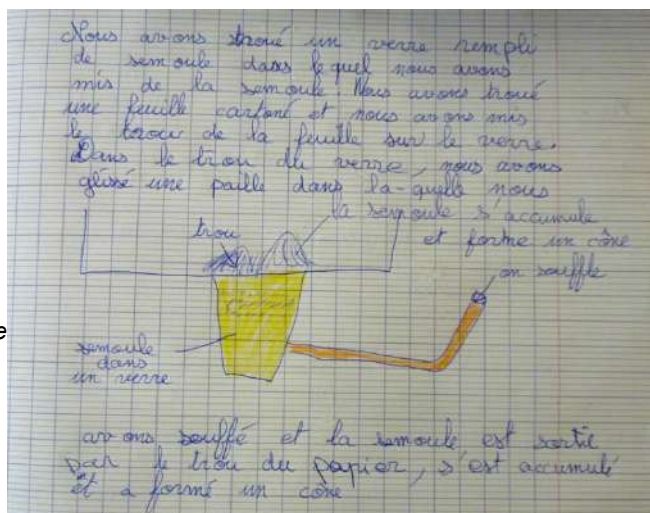 Nous avons troué un verre rempli
de semoule dans lequel nous avons
mis de la semoule. Nous avons troué
une feuille cartoné et nous avons mis
le trou de la feuille sur le verre.
Dans le trou du verre, nous avons
glissé une paille dans la-quelle nous
la semoule s'accumule
et forme un cône
trou
on souffle
e
semoule
dans
un verre
avons souffé et la semoule est sortie
par le trou du papier, s'est accumulé
et a formé un cône